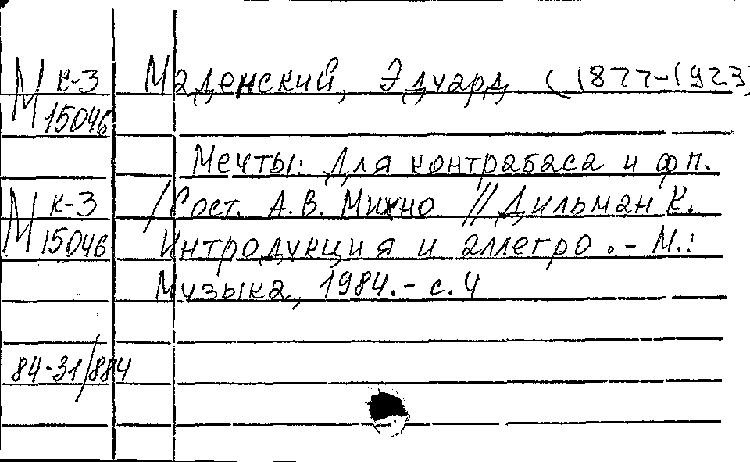 М К-3 Маденский, Эдуард (1877-1923)
15046
Мечты: Для контрабаса и фп.
М К-3 /Сост. А.В. Михно // Дильман К.
15046 Интродукция и аллегро. - М.:
Музыка, 1984. - с. 4
84-31/884